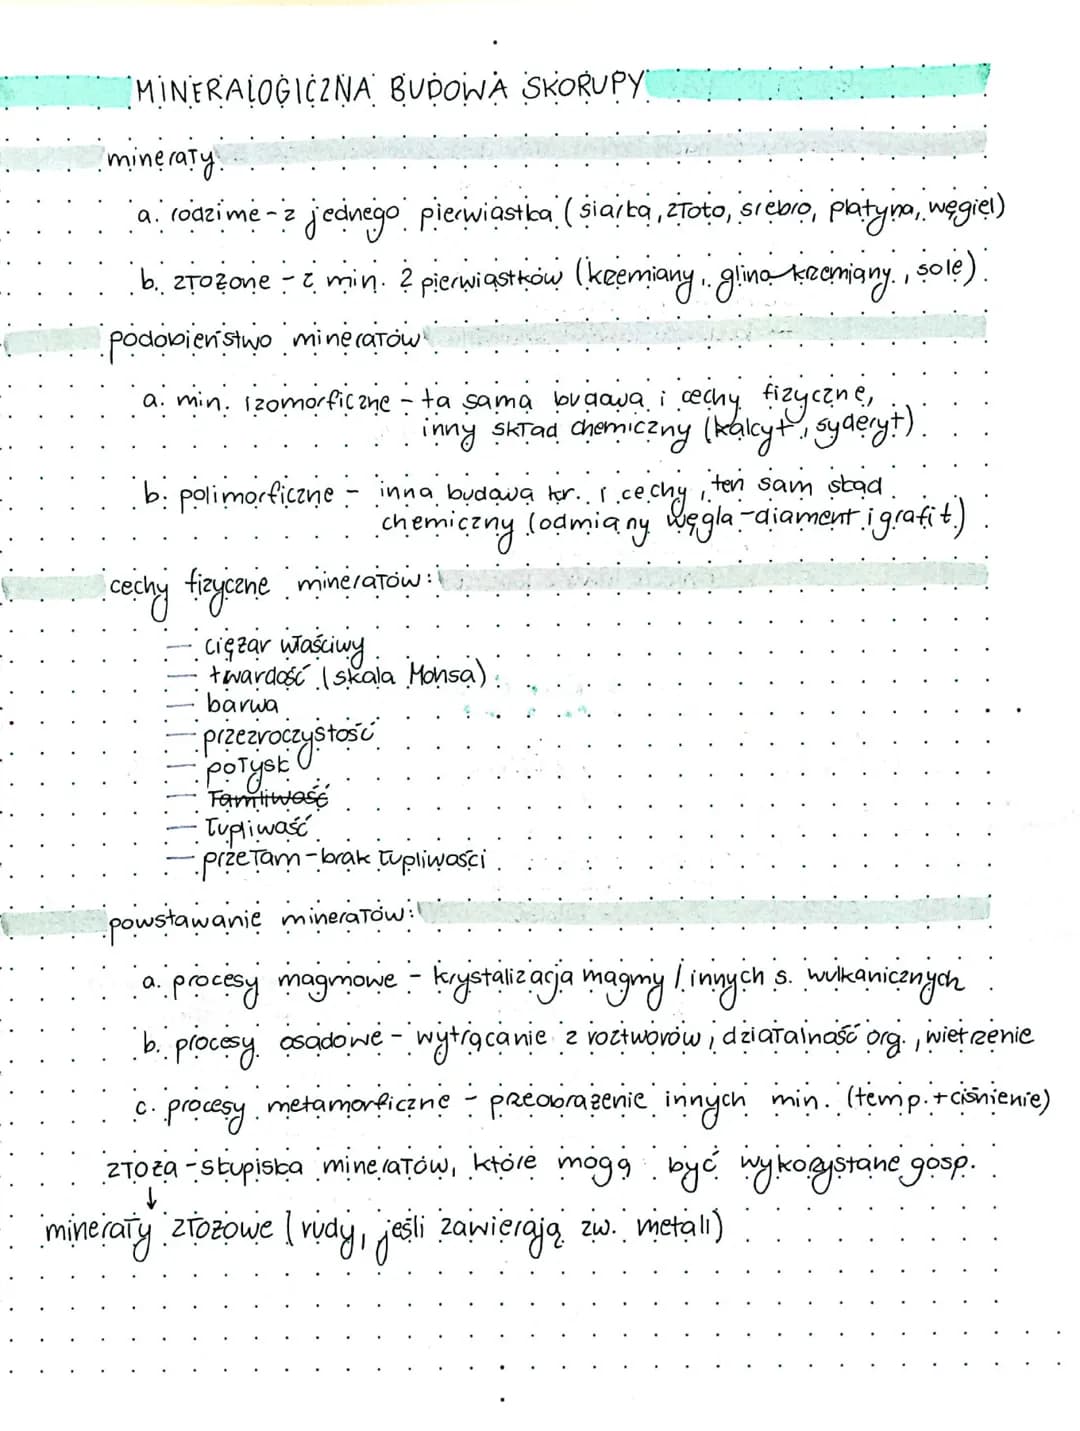 MINERALOGICZNA BUDOWA SKORUPY
minerały
a. rodzime - z jednego pierwiastka (siarka, złoto, srebro, platyna, węgiel)
b. złożone - z min. 2 pierwiastków (krzemiany, glinokrzemiany, sole).
podobieństwo minerałów
a. min. izomorficzne - ta sama budowa i cechy fizyczne,
inny skład chemiczny (kalcyt, syderyt).
b. polimorficzne - inna budowa kr. i cechy, ten sam skąd
chemiczny (odmiany węgla - diament i grafit)
cechy fizyczne minerałów:
— ciężar właściwy
— twardość (skala Mohsa)
— barwa
— przezroczystość
— połysk
— łamliwość
— łupliwość
— przełam - brak łupliwości
powstawanie minerałów:
a. procesy magmowe - krystalizacja magmy / innych s. wulkanicznych
b. procesy osadowe - wytrącanie z roztworów, działalność org., wietrzenie
c. procesy metamorficzne - przeobrażenie innych min. (temp. + ciśnienie)
złoża - skupiska minerałów, które mogą być wykorzystane gosp.
↓
minerały złożowe (rudy, jeśli zawierają zw. metali)